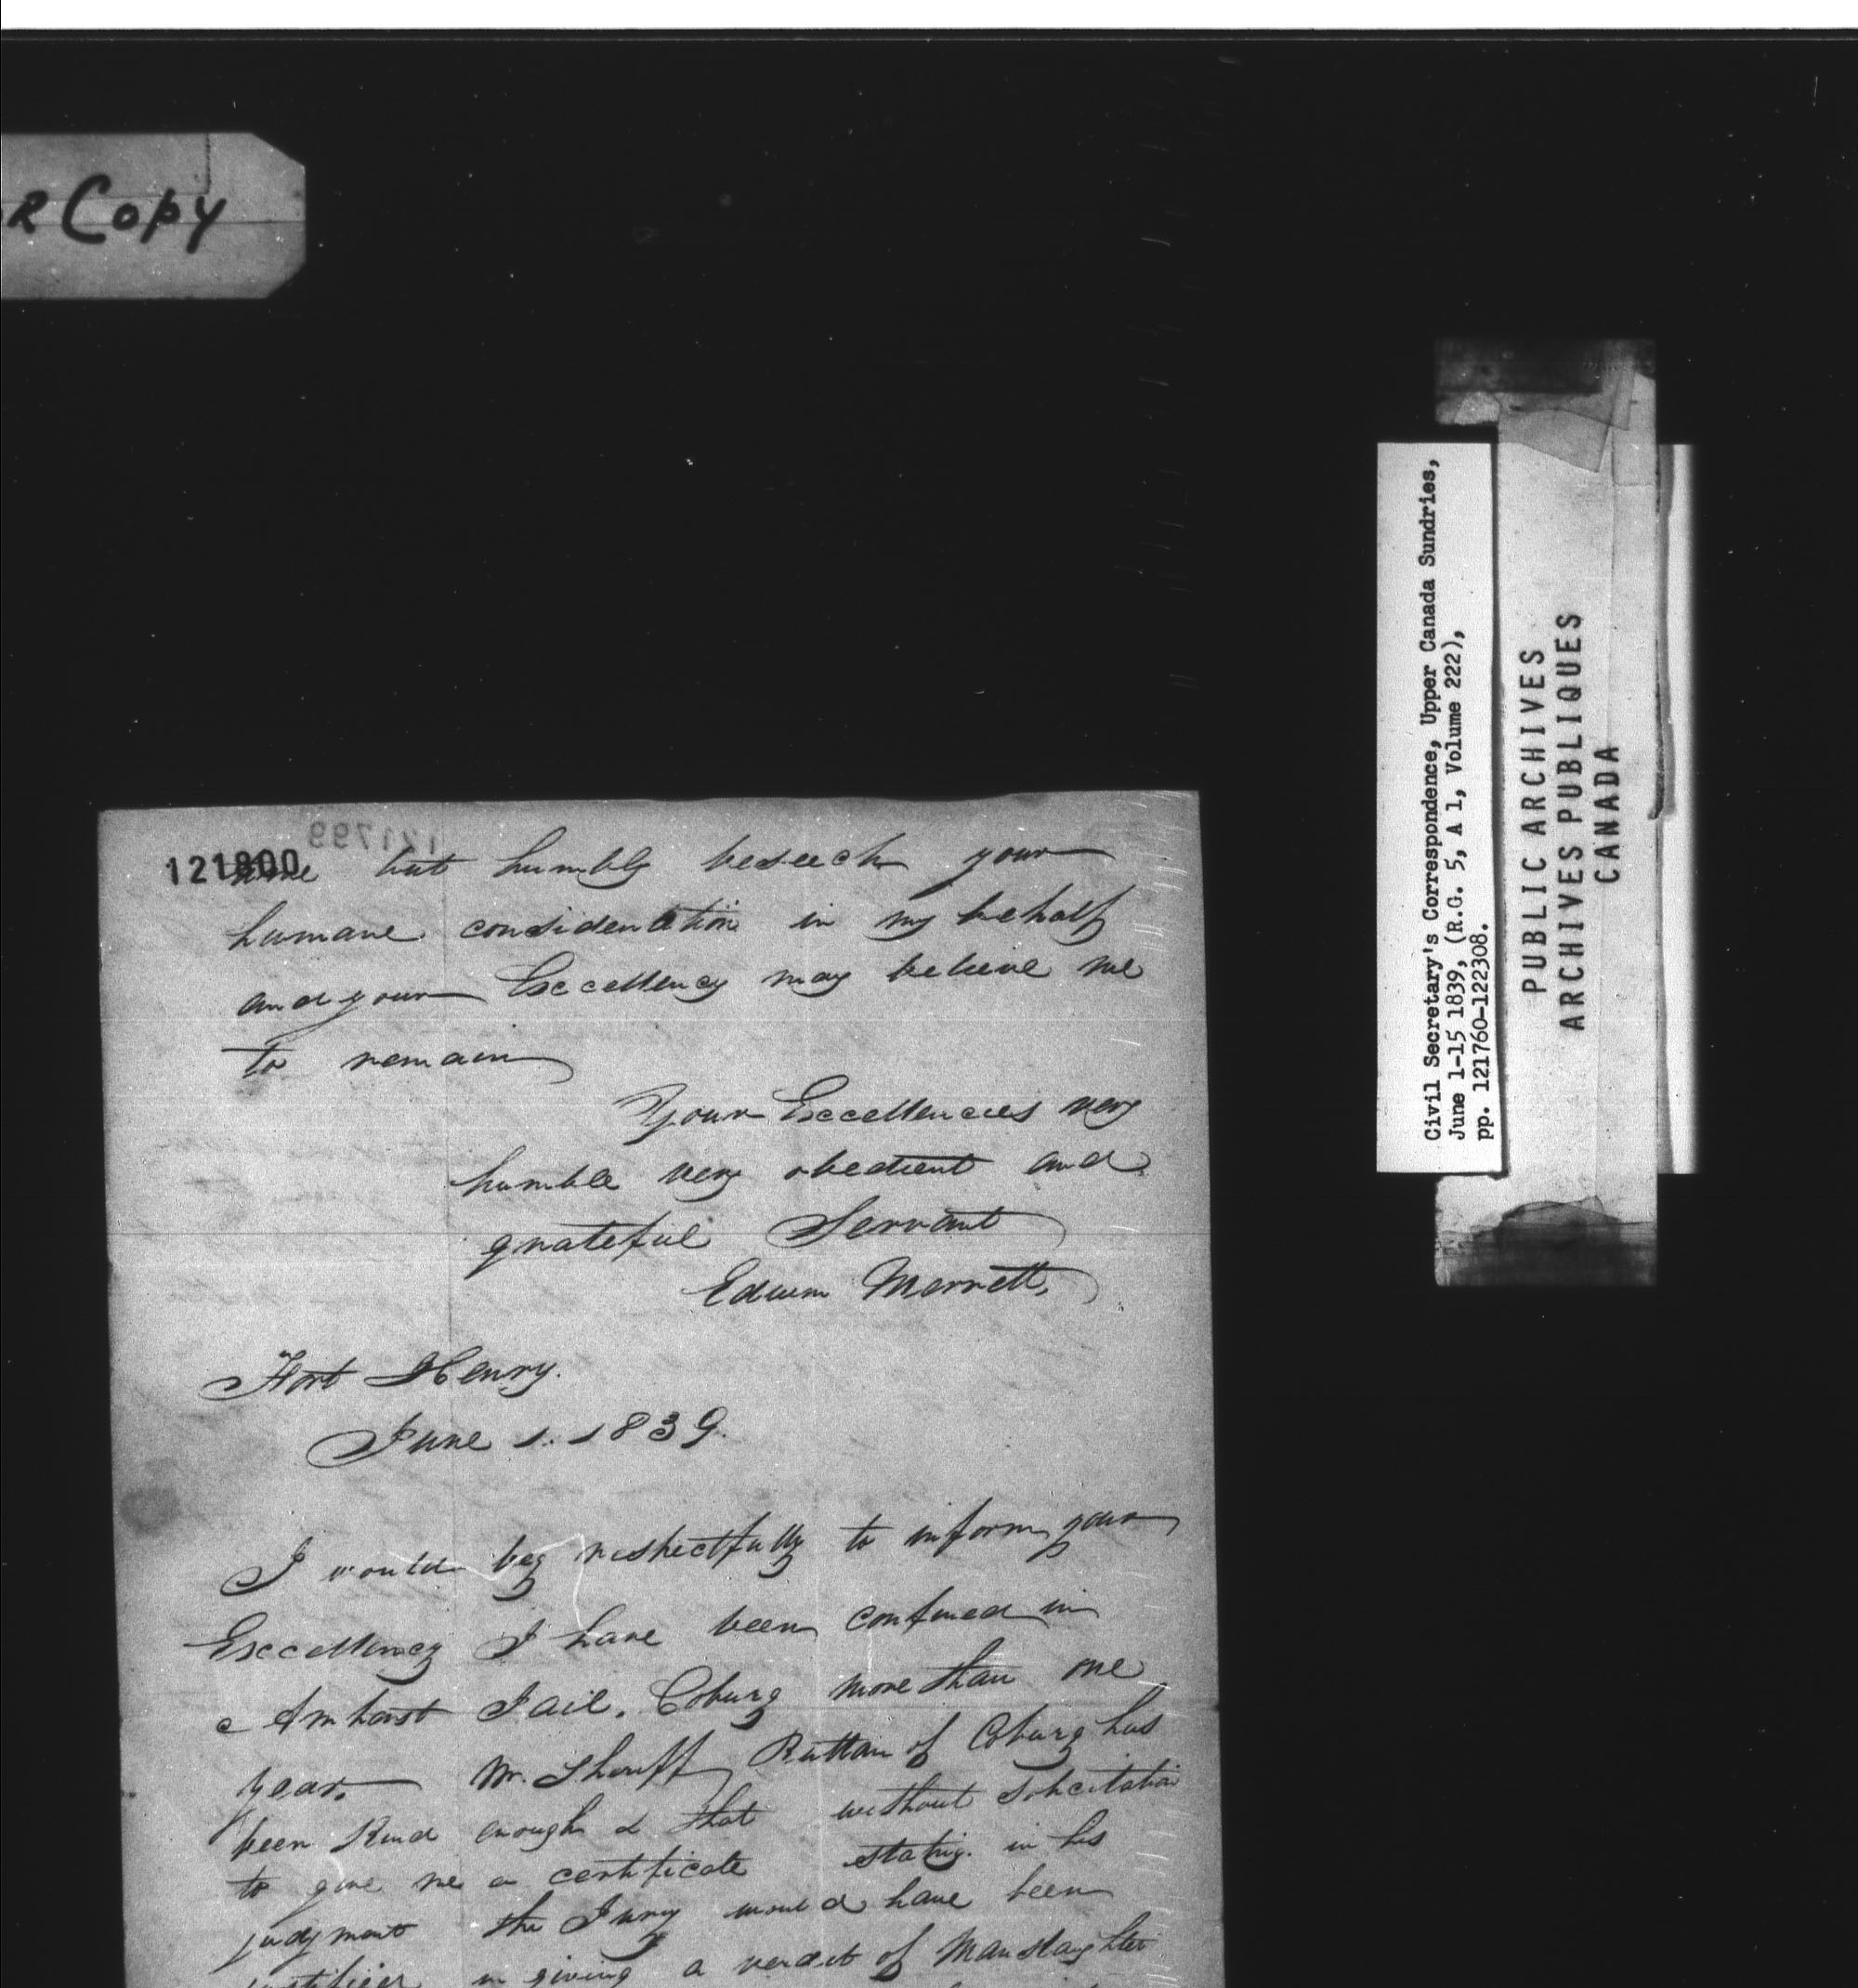 R Copy
121799
121800
but humbly beseech your
humane consideration in my behalf
and your Exccellency may believe me
to remain
Your Exccellencies very
humble very obedient and
grateful Servant
Edwin Merrett,
Fort Henry.
June 1. 1839.
I would beg respectfully to inform your
Exccellency I have been confined in
Amherst Jail. Coburg more than one
year. Mr. Sheriff Ruttan of Coburg has
been Kind enough & that without solicitation
to give me a certificate stating. in his
judgment the Jury would have been
in giving a verdict of Manslaughter
Civil Secretary's Correspondence, Upper Canada Sundries,
June 1-15 1839, (R.G. 5, A 1, Volume 222),
pp. 121760-122308.
PUBLIC ARCHIVES
ARCHIVES PUBLIQUES
CANADA